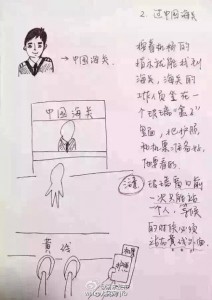 2. 过中国海关
→中国海关.
跟着机场的
指示就能找到
海关,海关的
工作人员坐在
一个玻璃“盒子”
里面,把护照
和机票准备好
中国海关
注意
玻璃窗口前
一次只能站
一个人,等候
的时候必须
站在黄线外面.
黄线
机票
护照